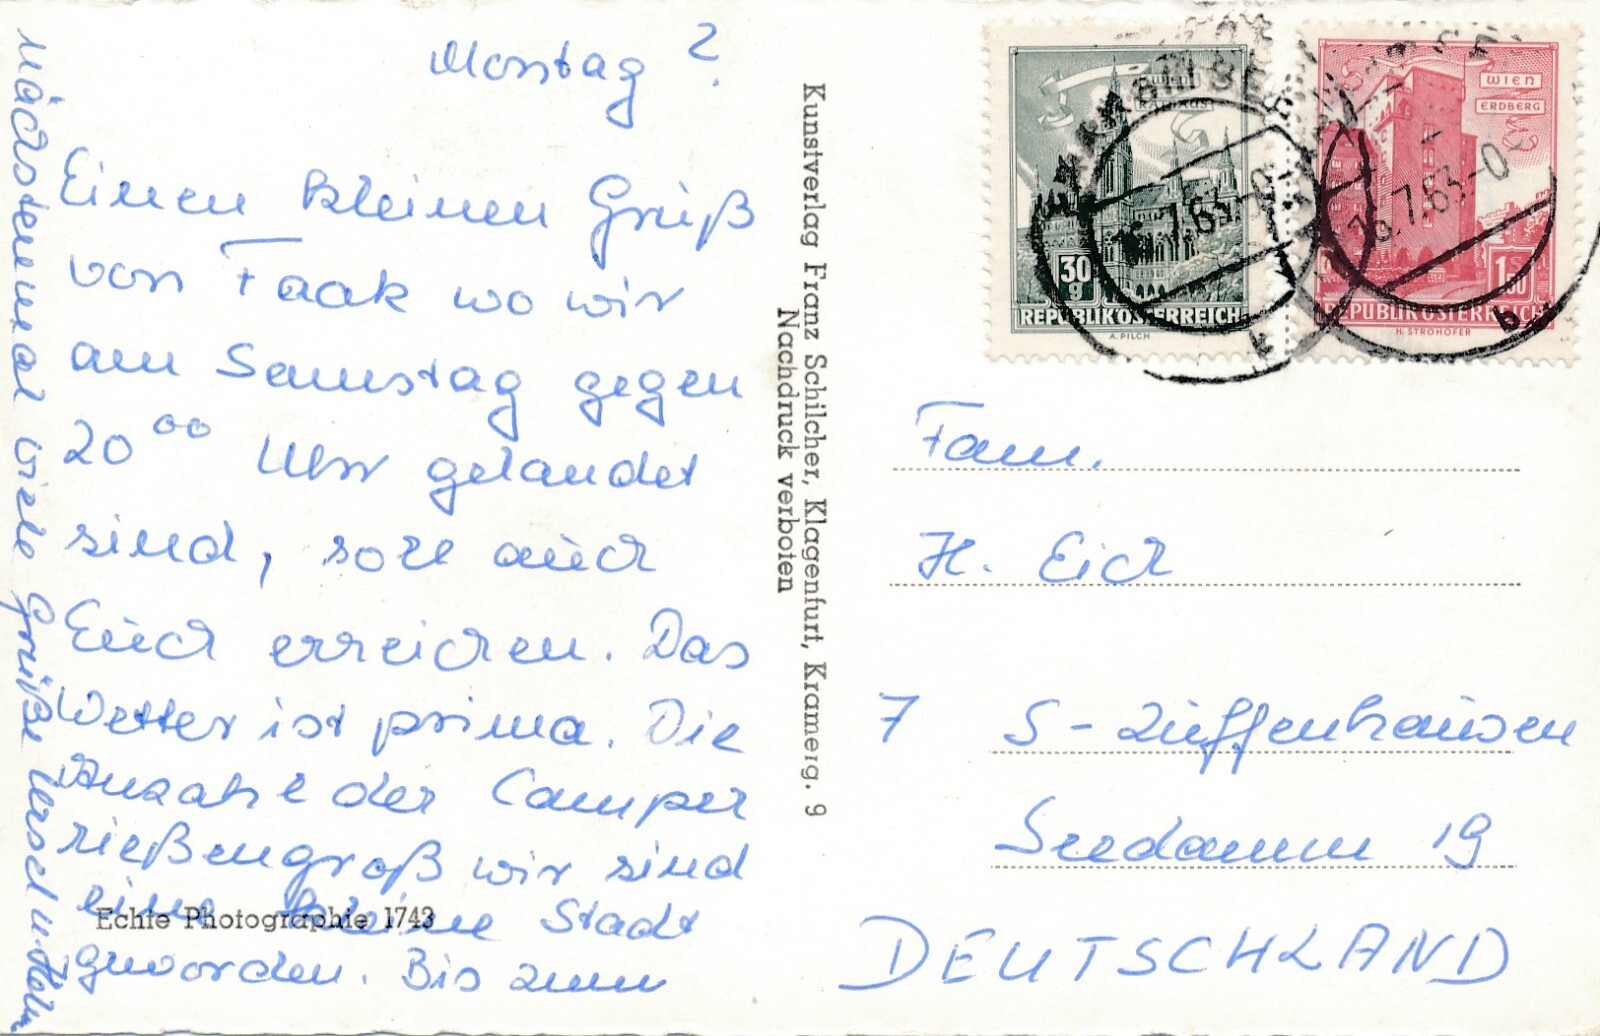 Montag ?
Einen kleinen Gruß
von Faak wo wir
am Samstag gegen
20 00 Uhr gelandet
sind, soll auch
Euch erreichen. Das
Wetter ist prima. Die
Anzahl der Camper
rießengroß wir sind
eine kleine Stadt
geworden. Bis zum
nächstenmal viele Grüße Ursel u.
Echte Photographie 1743
Kunstverlag Franz Schilcher, Klagenfurt, Kramerg. 9
Nachdruck verboten
WIEN
RATHAUS
30
g
REPUBLIK ÖSTERREICH
A. PILCH
WIEN
ERDBERG
S
1.50
REPUBLIK ÖSTERREICH
H. STROHOFER
7.63
7.63
b
Fam.
H. Eich
7 S-Zuffenhausen
Seedamm 19
DEUTSCHLAND